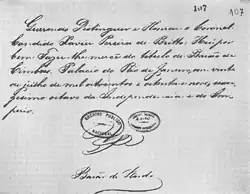 107 107
Querendo Distinguir e Honrar o Coronel
Candido Xavier Pereira de Britto, Hei por
bem Fazer-lhe mercê do titulo de Barão de
Cimbres. Palacio do Rio de Janeiro, em vinte
de julho de mil oitocentos e oitenta e nove, sexa-
gesimo oitavo da Independencia e do Im-
perio.
ARCHIVO PUBLICO
NACIONAL
Barão de